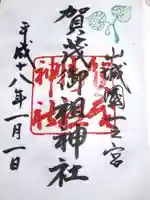 山城國一之宮
賀茂御祖神社
平成十八年一月一日